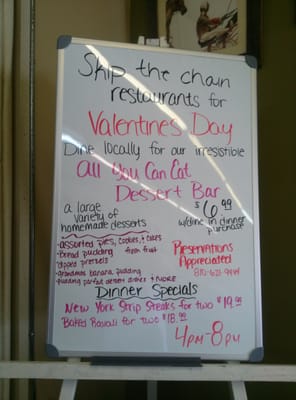 Skip the chain
restaurants for
Valentines Day
Dine locally for our irresistible
All You Can Eat
Dessert Bar
a large
variety of
homemade desserts
$6.99
w/dine in dinner
purchase
-assorted pies, cookies, & cakes
-Bread pudding fresh fruit
-dipped pretzels
-grandma's banana pudding
-pudding parfait dessert
& MORE
Reservations
Appreciated
Dinner Specials
New York Strip Steaks for two $19.99
Baked Ravioli for two $18.99
4PM-8PM